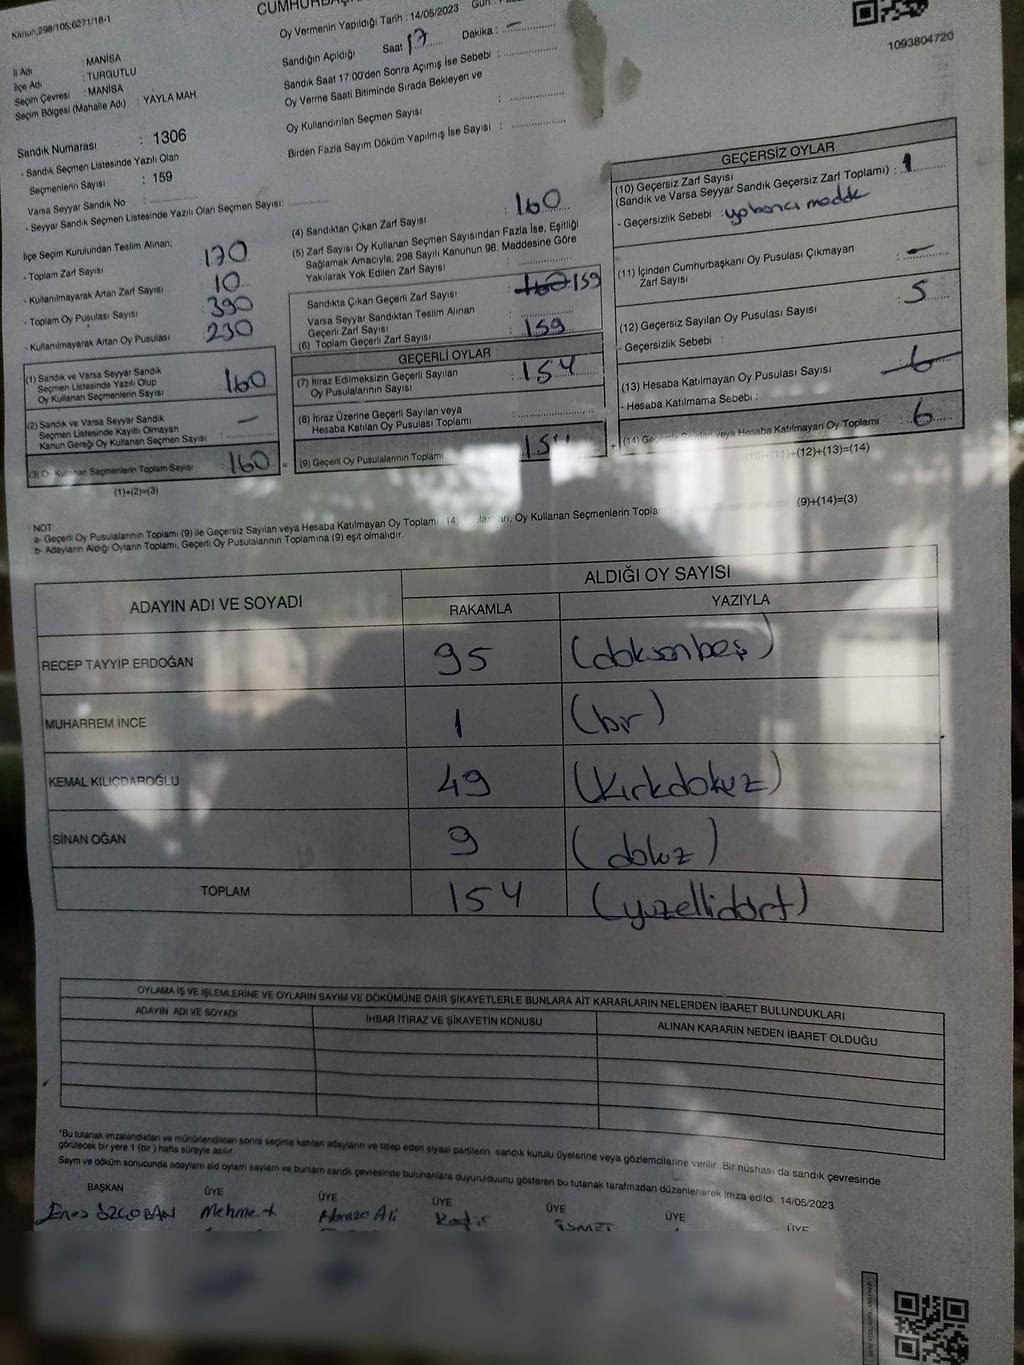 Kanun;298/105;6271/18-1
Oy Vermenin Yapıldığı Tarih : 14/05/2023
Sandığın Açıldığı Saat 17 Dakika : -
Sandık Saat 17:00'den Sonra Açımış İse Sebebi :
Oy Verme Saati Bitiminde Sırada Bekleyen ve
Oy Kullandırılan Seçmen Sayısı :
Birden Fazla Sayım Döküm Yapılmış İse Sayısı :
1093804720
İl Adı : MANİSA
İlçe Adı : TURGUTLU
Seçim Çevresi : MANİSA
Seçim Bölgesi (Mahalle Adı) : YAYLA MAH.
Sandık Numarası : 1306
- Sandık Seçmen Listesinde Yazılı Olan
Seçmenlerin Sayısı : 159
Varsa Seyyar Sandık No :
- Seyyar Sandık Seçmen Listesinde Yazılı Olan Seçmen Sayısı:
İlçe Seçim Kurulundan Teslim Alınan;
- Toplam Zarf Sayısı 170
- Kullanılmayarak Artan Zarf Sayısı 10
- Toplam Oy Pusulası Sayısı 390
- Kullanılmayarak Artan Oy Pusulası 230
(1) Sandık ve Varsa Seyyar Sandık
Seçmen Listesinde Yazılı Olup
Oy Kullanan Seçmenlerin Sayısı 160
(2) Sandık ve Varsa Seyyar Sandık
Seçmen Listesinde Kayıtlı Olmayan
Kanun Gereği Oy Kullanan Seçmen Sayısı : -
(3) Oy Kullanan Seçmenlerin Toplam Sayısı : 160
(1)+(2)=(3)
(4) Sandıktan Çıkan Zarf Sayısı : 160
(5) Zarf Sayısı Oy Kullanan Seçmen Sayısından Fazla İse, Eşitliği
Sağlamak Amacıyla, 298 Sayılı Kanunun 98. Maddesine Göre
Yakılarak Yok Edilen Zarf Sayısı :
Sandıkta Çıkan Geçerli Zarf Sayısı : 160 159
Varsa Seyyar Sandıktan Teslim Alınan
Geçerli Zarf Sayısı :
(6) Toplam Geçerli Zarf Sayısı : 159
GEÇERLİ OYLAR
(7) İtiraz Edilmeksizin Geçerli Sayılan
Oy Pusulalarının Sayısı : 154
(8) İtiraz Üzerine Geçerli Sayılan veya
Hesaba Katılan Oy Pusulası Toplamı :
= (9) Geçerli Oy Pusulalarının Toplamı : 154 +
GEÇERSİZ OYLAR
(10) Geçersiz Zarf Sayısı
(Sandık ve Varsa Seyyar Sandık Geçersiz Zarf Toplamı) : 1
- Geçersizlik Sebebi : yabancı madde
(11) İçinden Cumhurbaşkanı Oy Pusulası Çıkmayan
Zarf Sayısı : -
(12) Geçersiz Sayılan Oy Pusulası Sayısı : 5
- Geçersizlik Sebebi :
(13) Hesaba Katılmayan Oy Pusulası Sayısı 6
- Hesaba Katılmama Sebebi :
(14) veya Hesaba Katılmayan Oy Toplamı : 6
(10)+(11)+(12)+(13)=(14)
(9)+(14)=(3)
NOT:
a- Geçerli Oy Pusulalarının Toplamı (9) ile Geçersiz Sayılan veya Hesaba Katılmayan Oy Toplamı Oy Kullanan Seçmenlerin
b- Adayların Aldığı Oyların Toplamı, Geçerli Oy Pusulalarının Toplamına (9) eşit olmalıdır.
ADAYIN ADI VE SOYADI
ALDIĞI OY SAYISI
RAKAMLA YAZIYLA
RECEP TAYYİP ERDOĞAN 95 (doksanbeş)
MUHARREM İNCE 1 (bir)
KEMAL KILIÇDAROĞLU 49 (kırkdokuz)
SİNAN OĞAN 9 (dokuz)
TOPLAM 154 (yüzellidört)
OYLAMA İŞ VE İŞLEMLERİNE VE OYLARIN SAYIM VE DÖKÜMÜNE DAİR ŞİKAYETLERLE BUNLARA AİT KARARLARIN NELERDEN İBARET BULUNDUKLARI
ADAYIN ADI VE SOYADI İHBAR İTİRAZ VE ŞİKAYETİN KONUSU ALINAN KARARIN NEDEN İBARET OLDUĞU
*Bu tutanak imzalandıktan ve mühürlendikten sonra seçime katılan adayların ve talep eden siyasi partilerin sandık kurulu üyelerine veya gözlemcilerine verilir. Bir nüshası da sandık çevresinde
görülecek bir yere 1 (bir) hafta süreyle asılır.
BAŞKAN ÜYE ÜYE ÜYE ÜYE ÜYE ÜYE
Enes ÖZÇOBAN Mehmet Hamza Ali Kadir İSMET